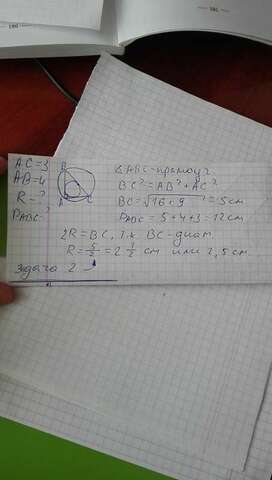 AC=3
AB=4
R=?
P ABC-?
B
A
C
△ABC-прямоуг.
BC²=AB²+AC²
BC=√16+9=5см
P ABC=5+4+3=12см
2R=BC, т.к BC-диам.
R=5/2=2 1/2 см или 2,5см
Задача 2